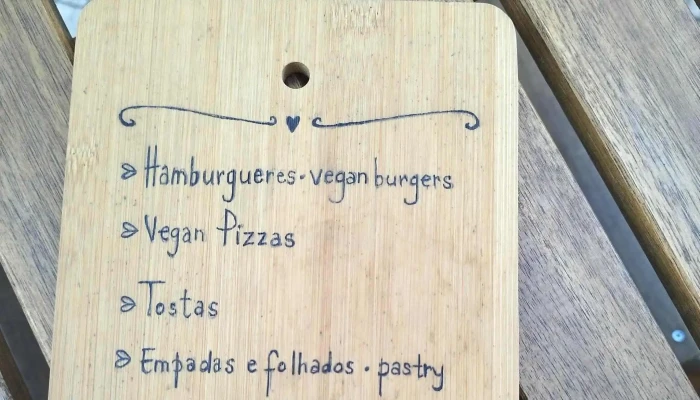 Hamburgueres · vegan burgers
Vegan Pizzas
Tostas
Empadas e folhados · pastry